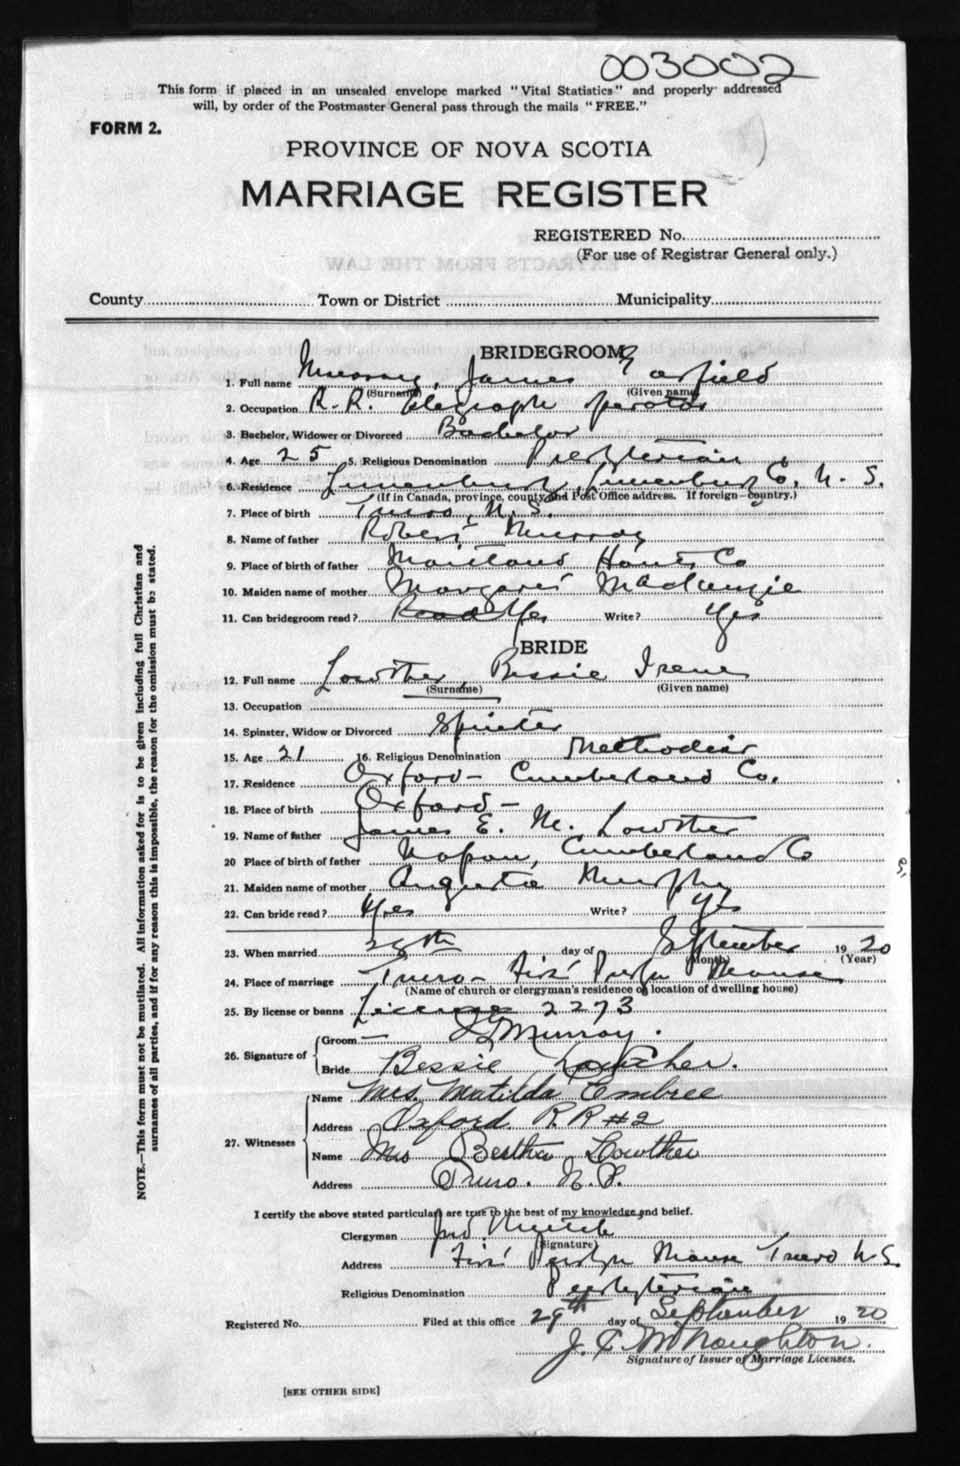 003002
This form if placed in an unsealed envelope marked "Vital Statistics" and properly addressed
will, by order of the Postmaster General pass through the mails "FREE."
FORM 2.
PROVINCE OF NOVA SCOTIA
MARRIAGE REGISTER
REGISTERED No.
(For use of Registrar General only.)
County Town or District Municipality
BRIDEGROOM
1. Full name Murray, James Garfield
(Surname) (Given name)
2. Occupation R.R. Telegraph Operator
3. Bachelor, Widower or Divorced Bachelor
4. Age 25 5. Religious Denomination Presbyterian
6. Residence Lunenburg, Lunenburg Co. N.S.
(If in Canada, province, county and Post Office address. If foreign—country.)
7. Place of birth Truro, N.S.
8. Name of father Robert Murray
9. Place of birth of father Maitland Hants Co
10. Maiden name of mother Margaret MacKenzie
11. Can bridegroom read? Read Yes Write? Yes
BRIDE
12. Full name Lowther, Bessie Irene
(Surname) (Given name)
13. Occupation
14. Spinster, Widow or Divorced Spinster
15. Age 21 16. Religious Denomination Methodist
17. Residence Oxford - Cumberland Co.
18. Place of birth Oxford -
19. Name of father James E. M. Lowther
20 Place of birth of father Napan, Cumberland Co
21. Maiden name of mother Augusta Murphy
22. Can bride read? Yes Write? Yes
23. When married 29th day of September 1920
(Month) (Year)
24. Place of marriage Truro - First Presbyn Manse
(Name of church or clergyman's residence or location of dwelling house)
25. By license or banns License 2273
26. Signature of
Groom JG Murray.
Bride Bessie Lowther.
27. Witnesses
Name Mrs. Matilda Embree
Address Oxford R R #2
Name Mrs Bertha Lowther
Address Truro. N.S.
I certify the above stated particulars are true to the best of my knowledge and belief.
Clergyman
(Signature)
Address First Presbyn Manse Truro N.S.
Religious Denomination Presbyterian
Registered No. Filed at this office 29th day of September 1920
J. F. McNaughton.
Signature of Issuer of Marriage Licenses.
[SEE OTHER SIDE]
NOTE.—This form must not be mutilated. All information asked for is to be given including full Christian and
surnames of all parties, and if for any reason this is impossible, the reason for the omission must be stated.